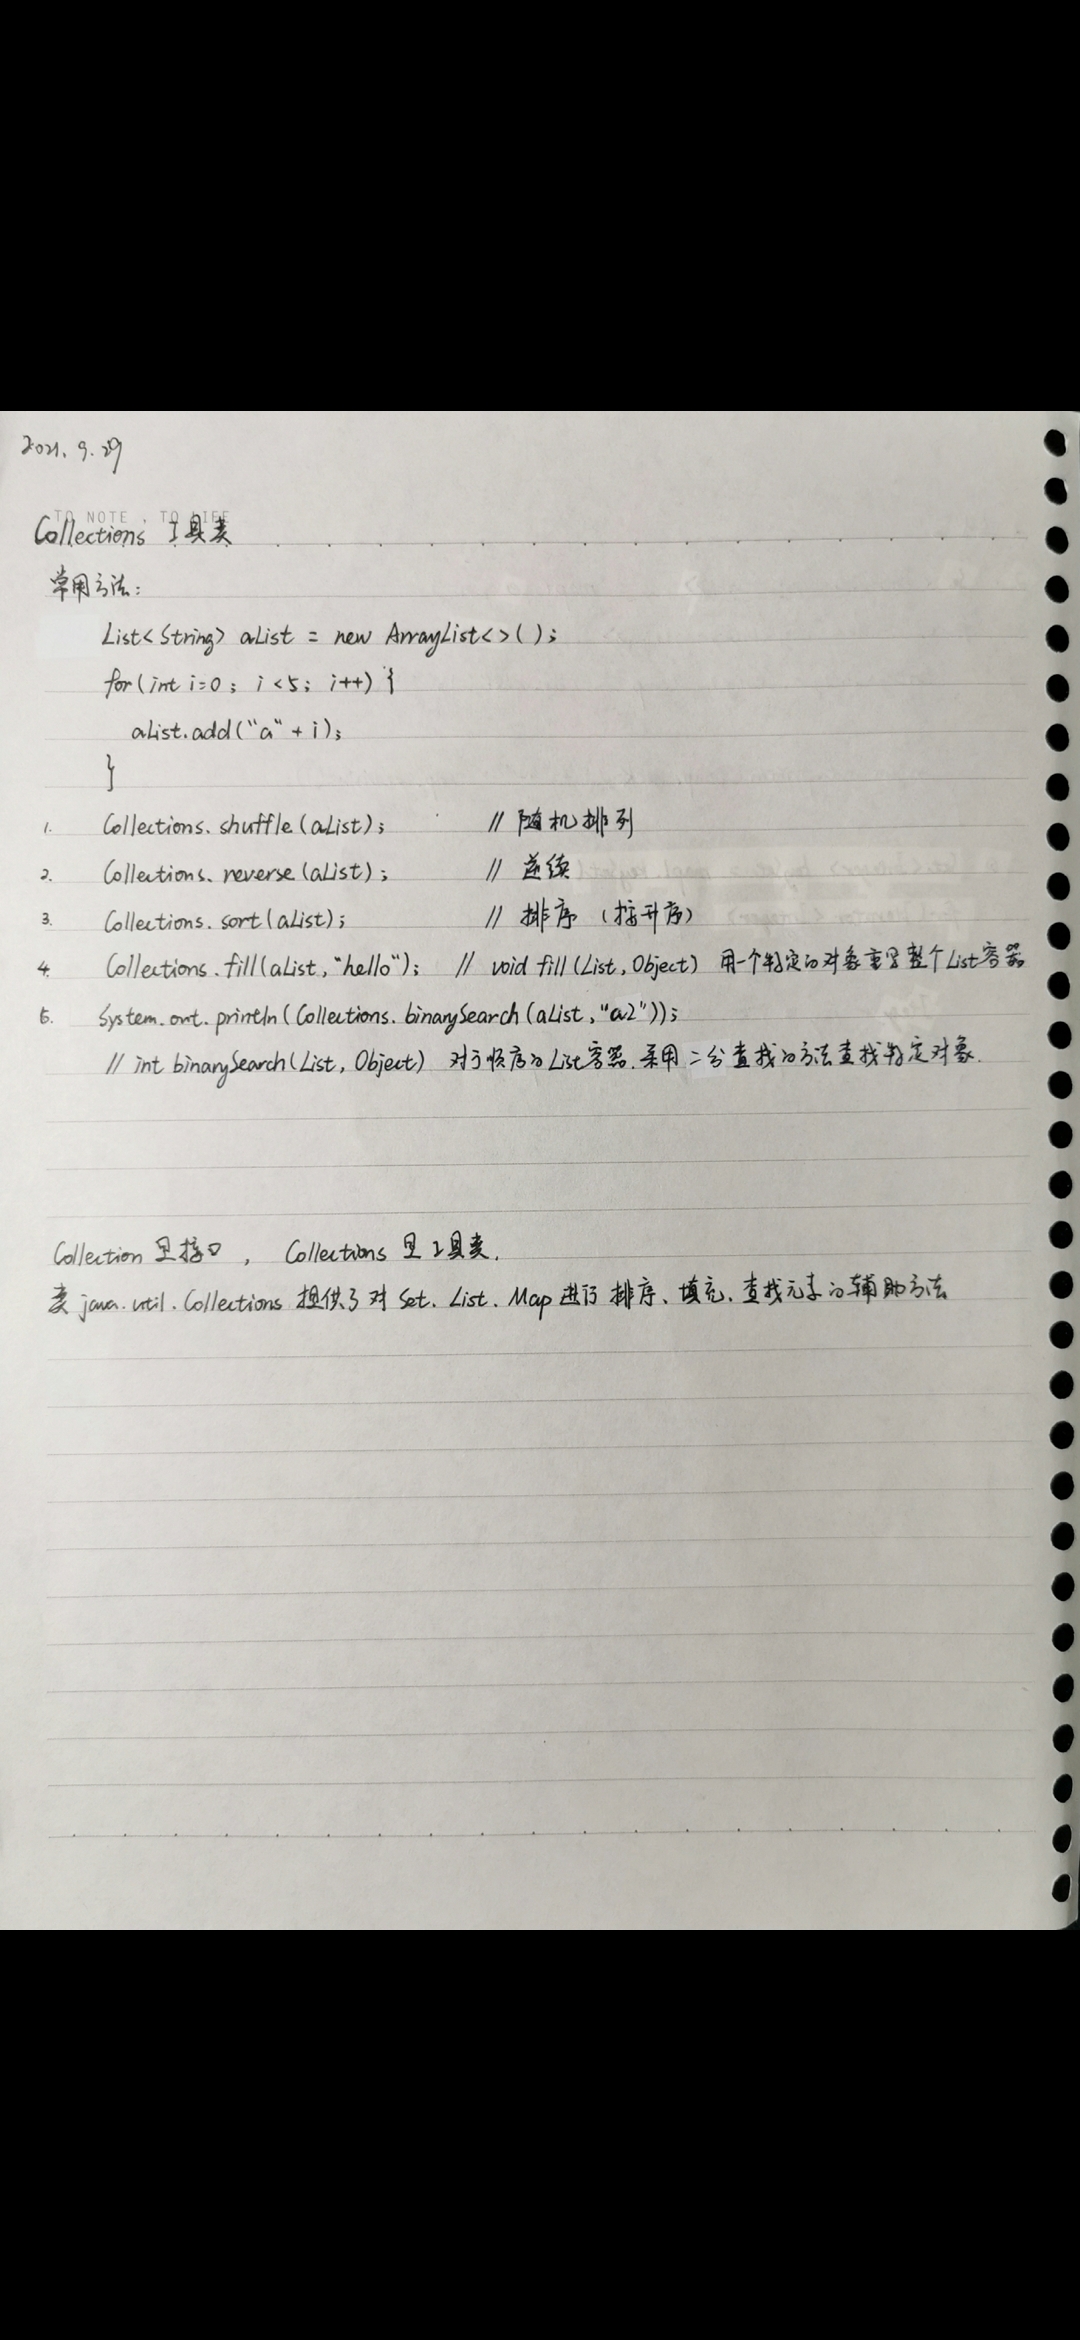 2021.9.29
TO NOTE , TO LIFE
Collections 工具类
常用方法：
List<String> aList = new ArrayList<>();
for(int i=0; i<5; i++) {
aList.add("a" + i);
}
1. Collections.shuffle(aList); // 随机排列
2. Collections.reverse(aList); // 逆续
3. Collections.sort(aList); // 排序（按升序）
4. Collections.fill(aList,"hello"); // void fill(List,Object) 用一个特定的对象重写整个List容器
5. System.out.println(Collections.binarySearch(aList,"a2"));
// int binarySearch(List, Object) 对于顺序的List容器.采用二分查找的方法查找特定对象.
Collection 是接口 , Collections 是工具类.
类 java.util.Collections 提供了对 Set、List、Map 进行 排序、填充、查找元素的辅助方法